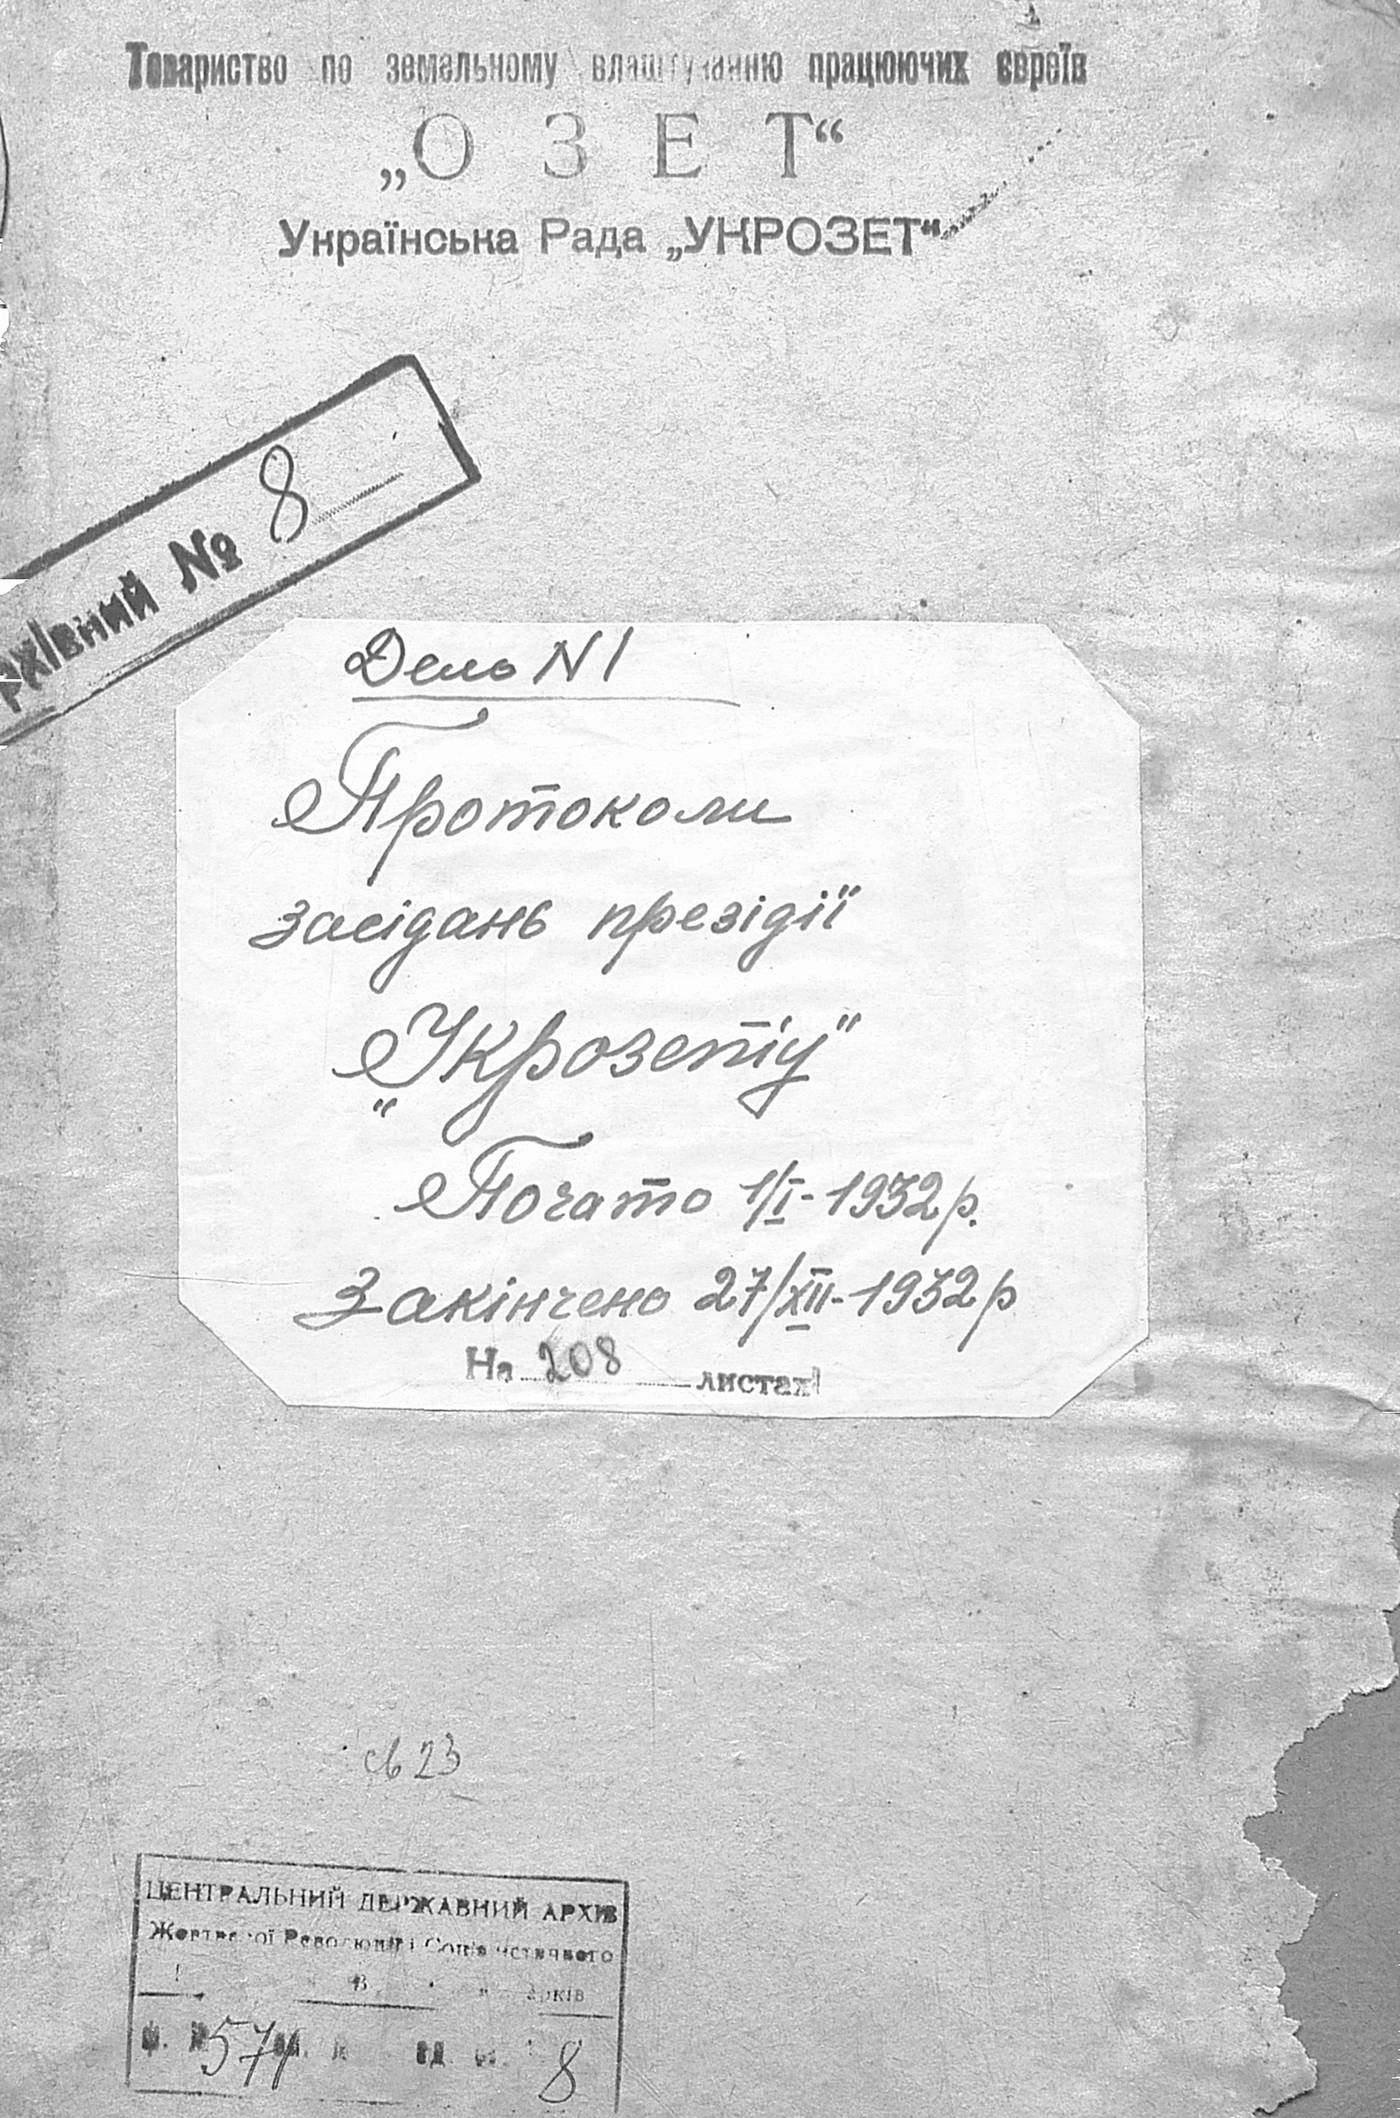 Товариство по земельному влаштуванню працюючих євреїв
„О З Е Т“
Українська Рада „УКРОЗЕТ“
рхівний № 8
Дело N 1
Протоколи
засідань презідії
„Укрозету"
Почато 1/I - 1932 р.
Закінчено 27/XII - 1932 р
На 208 листах
св 23
ЦЕНТРАЛЬНИЙ ДЕРЖАВНИЙ АРХІВ
Жовтневої Революції і Соціалістичного
ф. № 571 оп. од. зб. 8